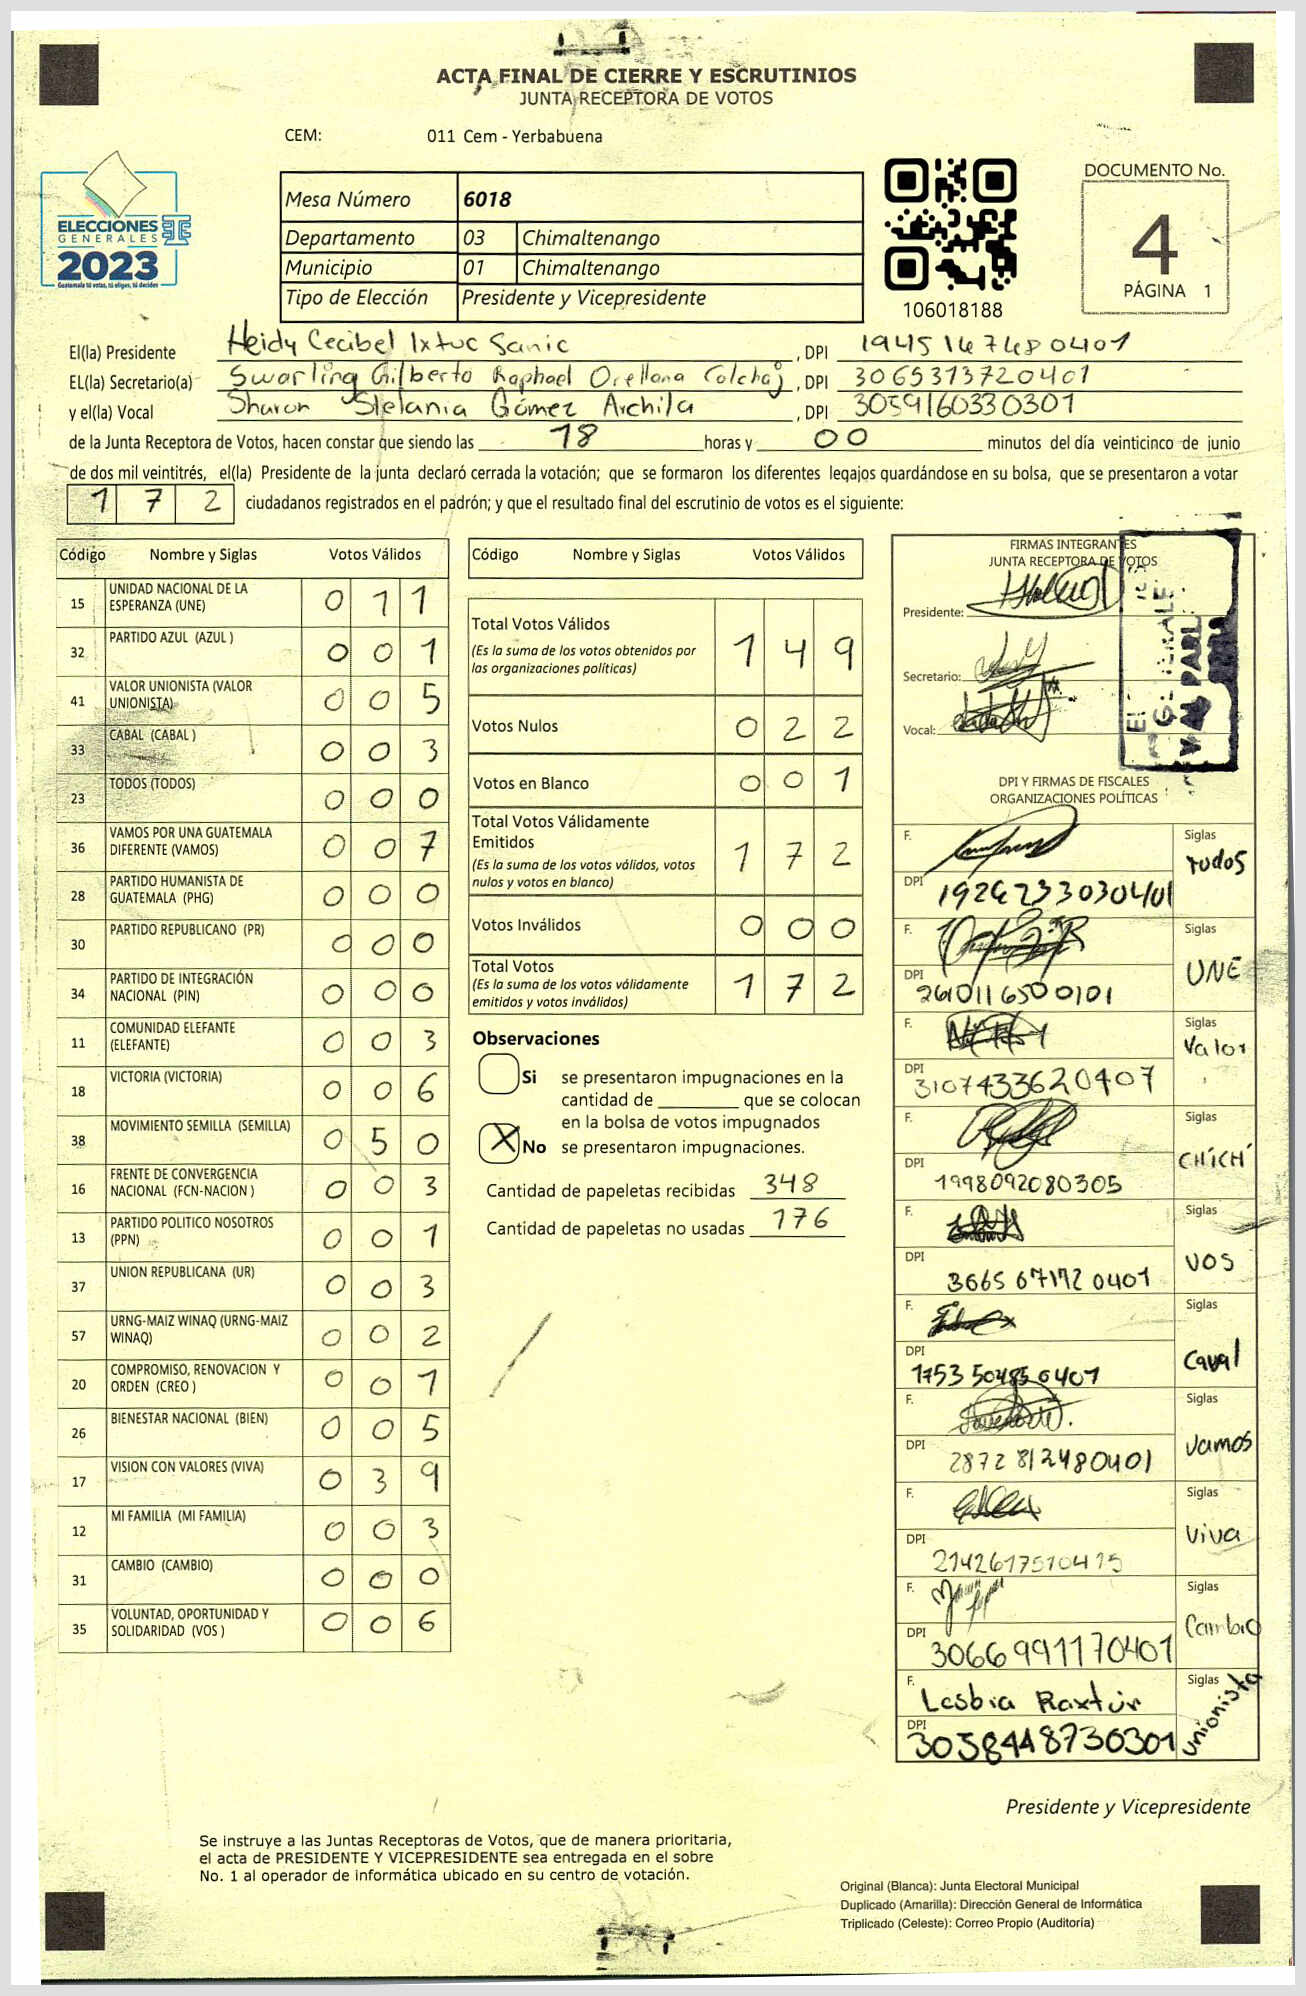 ACTA FINAL DE CIERRE Y ESCRUTINIOS
JUNTA RECEPTORA DE VOTOS
CEM: 011 Cem - Yerbabuena
ELECCIONES
GENERALES
2023
Guatemala tú votas, tú eliges, tú decides
Mesa Número 6018
Departamento 03 Chimaltenango
Municipio 01 Chimaltenango
Tipo de Elección Presidente y Vicepresidente
106018188
DOCUMENTO No.
4
PÁGINA 1
El(la) Presidente Heidy Cecibel Ixtuc Sanic, DPI 1945167480401
EL(la) Secretario(a) Swarling Gilberto Raphael Orellana Colchaj, DPI 3065313720401
y el(la) Vocal Sharon Stefania Gómez Archila, DPI 3059160330301
de la Junta Receptora de Votos, hacen constar que siendo las 18 horas y 00 minutos del día veinticinco de junio
de dos mil veintitrés, el(la) Presidente de la junta declaró cerrada la votación; que se formaron los diferentes legajos guardándose en su bolsa, que se presentaron a votar
172 ciudadanos registrados en el padrón; y que el resultado final del escrutinio de votos es el siguiente:
Código Nombre y Siglas Votos Válidos
15 UNIDAD NACIONAL DE LA ESPERANZA (UNE) 0 1 1
32 PARTIDO AZUL (AZUL ) 0 0 1
41 VALOR UNIONISTA (VALOR UNIONISTA) 0 0 5
33 CABAL (CABAL ) 0 0 3
23 TODOS (TODOS) 0 0 0
36 VAMOS POR UNA GUATEMALA DIFERENTE (VAMOS) 0 0 7
28 PARTIDO HUMANISTA DE GUATEMALA (PHG) 0 0 0
30 PARTIDO REPUBLICANO (PR) 0 0 0
34 PARTIDO DE INTEGRACIÓN NACIONAL (PIN) 0 0 0
11 COMUNIDAD ELEFANTE (ELEFANTE) 0 0 3
18 VICTORIA (VICTORIA) 0 0 6
38 MOVIMIENTO SEMILLA (SEMILLA) 0 5 0
16 FRENTE DE CONVERGENCIA NACIONAL (FCN-NACION ) 0 0 3
13 PARTIDO POLITICO NOSOTROS (PPN) 0 0 1
37 UNION REPUBLICANA (UR) 0 0 3
57 URNG-MAIZ WINAQ (URNG-MAIZ WINAQ) 0 0 2
20 COMPROMISO, RENOVACION Y ORDEN (CREO ) 0 0 1
26 BIENESTAR NACIONAL (BIEN) 0 0 5
17 VISION CON VALORES (VIVA) 0 3 9
12 MI FAMILIA (MI FAMILIA) 0 0 3
31 CAMBIO (CAMBIO) 0 0 0
35 VOLUNTAD, OPORTUNIDAD Y SOLIDARIDAD (VOS ) 0 0 6
Código Nombre y Siglas Votos Válidos
Total Votos Válidos 1 4 9
(Es la suma de los votos obtenidos por
las organizaciones políticas)
Votos Nulos 0 2 2
Votos en Blanco 0 0 1
Total Votos Válidamente
Emitidos 1 7 2
(Es la suma de los votos válidos, votos
nulos y votos en blanco)
Votos Inválidos 0 0 0
Total Votos 1 7 2
(Es la suma de los votos válidamente
emitidos y votos inválidos)
Observaciones
Si se presentaron impugnaciones en la
cantidad de ________ que se colocan
en la bolsa de votos impugnados
X No se presentaron impugnaciones.
Cantidad de papeletas recibidas 348
Cantidad de papeletas no usadas 176
FIRMAS INTEGRANTES
JUNTA RECEPTORA DE VOTOS
Presidente:
Secretario:
Vocal:
DPI Y FIRMAS DE FISCALES
ORGANIZACIONES POLÍTICAS
F. Siglas todos
DPI
F. Siglas UNE
DPI 2610116500101
F. Siglas Valor
DPI 3107433620407
F. Siglas CHICHI
DPI 1998092080305
F. Siglas VOS
DPI 3665671720401
F. Siglas Caval
DPI 1753504850401
F. Siglas Vamos
DPI 2872812480401
F. Siglas Viva
DPI 2142617510415
F. Siglas Cambio
DPI 3066991170401
F. Lesbia Raxtún Siglas Unionista
DPI 3058448730301
Presidente y Vicepresidente
Se instruye a las Juntas Receptoras de Votos, que de manera prioritaria,
el acta de PRESIDENTE Y VICEPRESIDENTE sea entregada en el sobre
No. 1 al operador de informática ubicado en su centro de votación.
Original (Blanca): Junta Electoral Municipal
Duplicado (Amarilla): Dirección General de Informática
Triplicado (Celeste): Correo Propio (Auditoría)